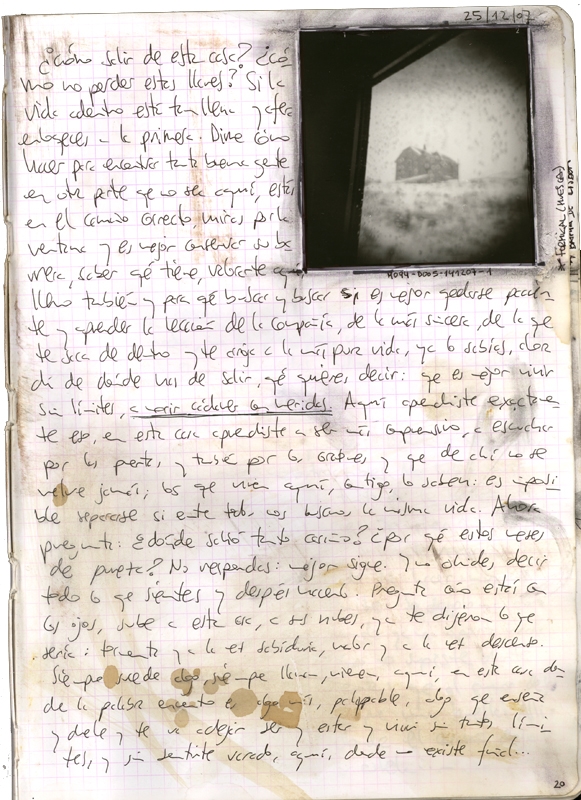 25/12/07
¿cómo salir de esta casa? ¿có
mo no perder estas llaves? Si la
vida adentro está tan llena y afuera
la primera. Dime cómo
hacer para encontrar tanta buena gente
en otra parte qe no sea aquí, estás
en el camino correcto, miras por la
ventana y es mejor conservar su
saber qé tiene, valorarte aquí
lleno también y para qé buscar y buscar si es mejor qedarse
te y aprender la lección de la compañía, de la más sincera, de la qe
te saca de dentro y te a la más pura vida, ya lo sabías,
di de dónde has de salir, qé quieres decir: qe es mejor vivir
sin límites, a morir cadáver con heridas. Aquí aprendiste exactamen
te eso, en esta casa aprendiste a ser más comprensivo, a escuchar
por las puertas, y también por los y qe de ahí no se
vuelve jamás; los qe viven aquí, contigo, lo saben: es imposi
ble separarse si ante todo nos buscamos la misma vida. Ahora
pregunta: ¿dónde salió tanto cariño? ¿por qé estos meses
de pureza? No respondas: mejor sigue. Y no olvides, decir
todo lo qe sientes y después hacerlo. Pregunta cómo están con
los ojos, sube a esta casa, a sus nubes, ya te dijeron lo qe
sería: y a la vez sabiduría, valor y a la vez descanso.
Siempre sucede algo, siempre llaman, vienen, aquí, en esta casa don
de la palabra encuentro es algo más, palpable, algo qe enseña
y duele y te va a dejar ser y estar y vivir sin tantos lími
tes, y sin sentirte varado, aquí, donde no existe final...
H094-D005-141207-1
20